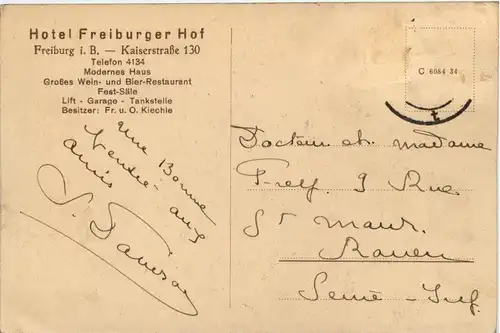 Hotel Freiburger Hof
Freiburg i. B. — Kaiserstraße 130
Telefon 4134
Modernes Haus
Großes Wein- und Bier-Restaurant
Fest-Säle
Lift - Garage - Tankstelle
Besitzer: Fr. u. O. Kiechle
C 6084 34
une Bonne
aux
amis
Docteur et madame
9 Rue
St Maur.
Rouen
Seine - Inf.